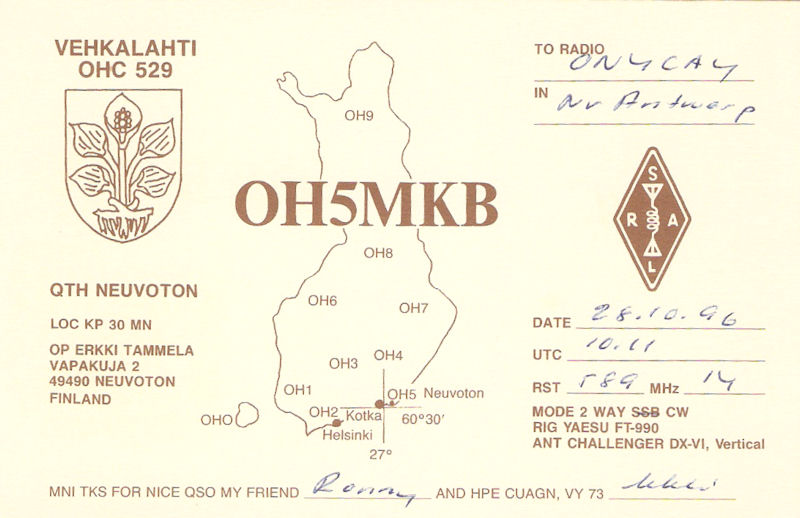 VEHKALAHTI
OHC 529
TO RADIO ON4CAY
IN Nr Antwerp
OH9
OH5MKB
S
R A
L
OH8
QTH NEUVOTON
LOC KP 30 MN
OP ERKKI TAMMELA
VAPAKUJA 2
49490 NEUVOTON
FINLAND
OH6
OH7
OH3
OH4
OH1
OH5 Neuvoton
OHO
OH2
Kotka
60°30'
Helsinki
27°
DATE 28.10.96
UTC 10.11
RST 589 MHz 14
MODE 2 WAY SSB CW
RIG YAESU FT-990
ANT CHALLENGER DX-VI, Vertical
MNI TKS FOR NICE QSO MY FRIEND Ronny AND HPE CUAGN, VY 73